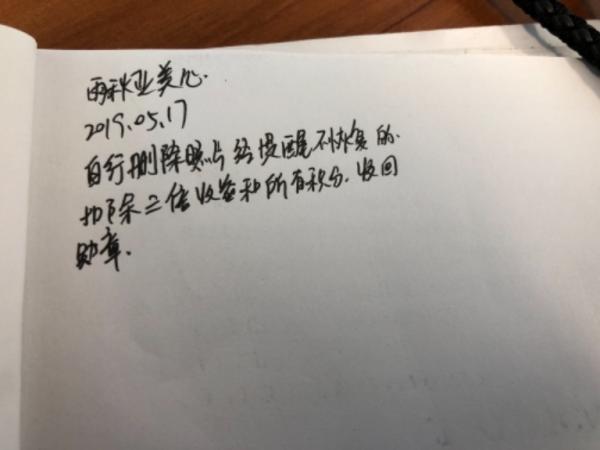 雨秋亚美心.
2019.05.17
自行删除照片经提醒不恢复的.
扣除二倍收益和所有积分.收回
勋章.